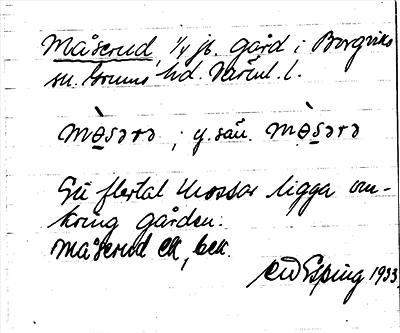 Måserud, 1/4 jb. gård i Borgviks
sn. Grums hd. Värml. l.
mòsərə ; y. sätt. mòsərə
Ett flertal mossar ligga om-
kring gården.
Måserud ek, bek.
EW Esping 1933.